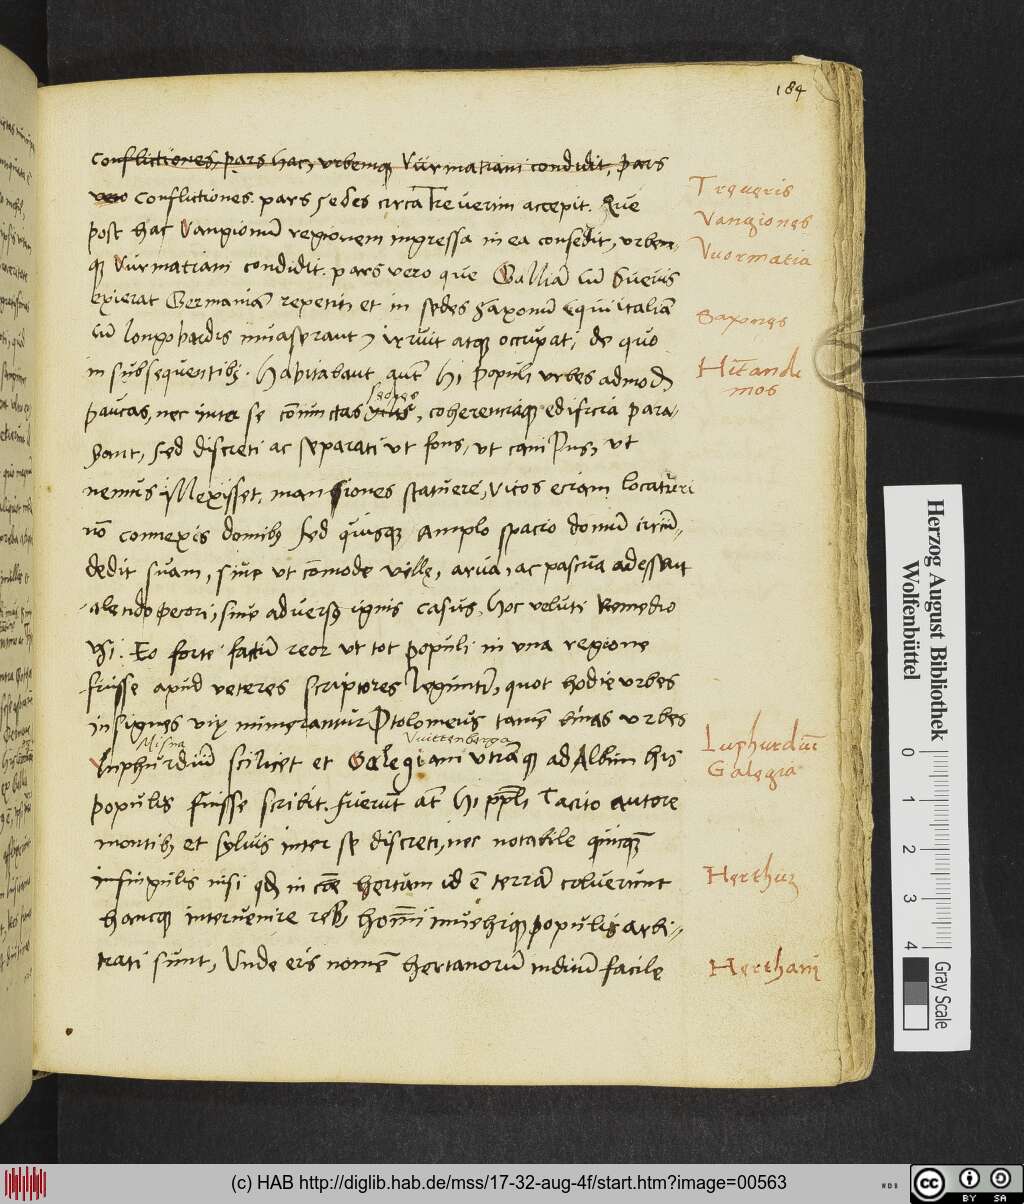 184
conflictiones, pars hac, urbemq Vurmatiam condidit, pars
vero conflictiones. pars sedes circa Treverim accepit. Que
post hac Vangionū regionem ingressa in ea consedit, urbem-
q Vurmatiam condidit. pars vero que Galliā cū Suevis
exierat Germaniā repetiit et in sedes Saxonū qui italiā
cū longobardis invaserant, irruit atq occupat, de quo
in subsequentib. Habitabant aut̄ hi populi urbes admodū
paucas, nec inter se cōiunctas sedes, coherenciaq edificia para-
bant, sed discreti ac separati ut fons, ut campus, ut
nemus illexisset, mansiones statuere, vicos eciam locaturi
nō connexis domib, sed quisq amplo spacio domū circū-
dedit suam, sive ut cōmode ville, arva, ac pascua adessent
alendo pecori, sive adversq ignis casus, hoc veluti remedio
usi. Eo forte factū reor ut tot populi in una regione
fuisse apud veteres scriptores legūtur, quot hodie urbes
insignes vix numerantur Ptolomeus tamē binas urbes
Misna Vuittenberga
Luphurdiū scilicet et Galegiam utramq ad Albim his
populis fuisse scribit. fuerūt aūt hi ppli Tacito autore
montib et sylvis inter se discreti, nec notabile quicq
in singulis nisi qd in cōe hertum id ē terrā coluerunt
hancq intervenire reb, homī invehiq populis arbi-
trati sunt, Unde eis nomē hertanorū inditū facile
Treveris
Vangiones
Vuormatia
Saxones
Hītandi
mos
Luphurdiū
Galegia
Herthuz
Herthani
Herzog August Bibliothek
Wolfenbüttel
0 1 2 3 4
Gray Scale
(c) HAB http://diglib.hab.de/mss/17-32-aug-4f/start.htm?image=00563
WDB
cc BY SA